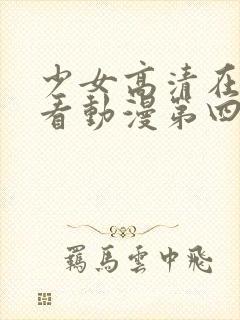 少女高清在
看動漫第四
羈馬雲中飛